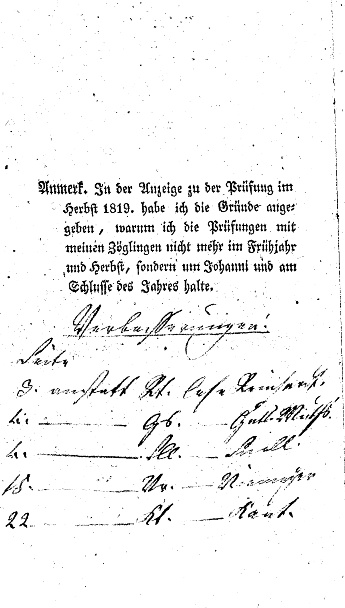 Anmerk. In der Anzeige zu der Prüfung im
Herbst 1819. habe ich die Gründe ange-
geben, warum ich die Prüfungen mit
meinen Zöglingen nicht mehr im Frühjahr
und Herbst, sondern um Johanni und am
Schlusse des Jahres halte.
Verbesserungen:
Seite
3. anstatt Rt. lese Reinhard.
— Gs. —
—
18. — Nr. — Niemeyer
22 — Kt. — Kant.